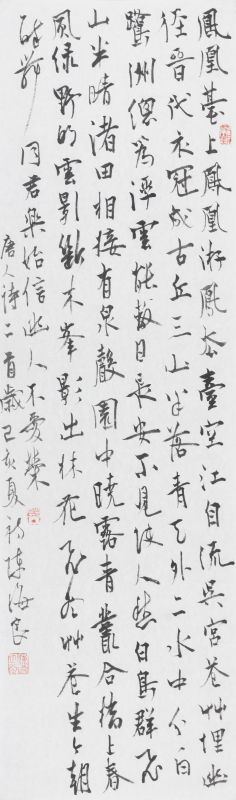 鳳凰臺上鳳凰游鳳去臺空江自流吳宮花艸埋幽
徑晉代衣冠成古丘三山半落青天外二水中分白
鷺洲總為浮雲能蔽日長安不見使人愁白鳥群飛
山半晴渚田相接有泉聲園中曉露青叢合橋上春
風綠野明雲影斷來峯影出林花飛盡艸花生今朝
醉舞同君樂始信幽人不愛榮
唐人詩二首歲己亥夏初陳海良